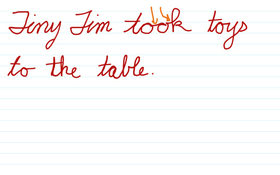 Tiny Tim took toys
to the table.